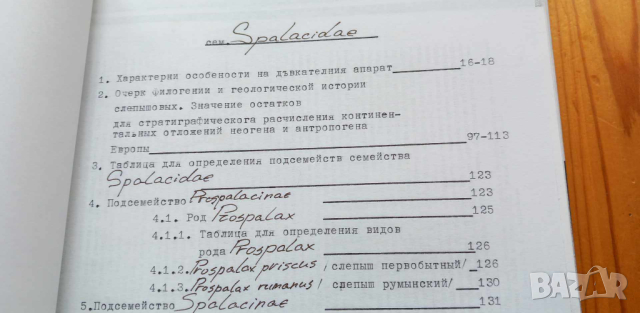 сем. Spalacidae
1. Характерни особености на дъвкателния апарат 16-18
2. Очерк филогении и геологической истории
слепышовых. Значение остатков
для стратиграфического расчисления континен-
тальных отложений неогена и антропогена
Европы 97-113
3. Таблица для определения подсемейств семейства
Spalacidae 123
4. Подсемейство Prospalacinae 123
4.1. Род Prospalax 125
4.1.1. Таблица для определения видов
рода Prospalax 126
4.1.2. Prospalax priscus /слепыш первобытный/ 126
4.1.3. Prospalax rumanus /слепыш румынский/ 130
5. Подсемейство Spalacinae 131
BAZAR